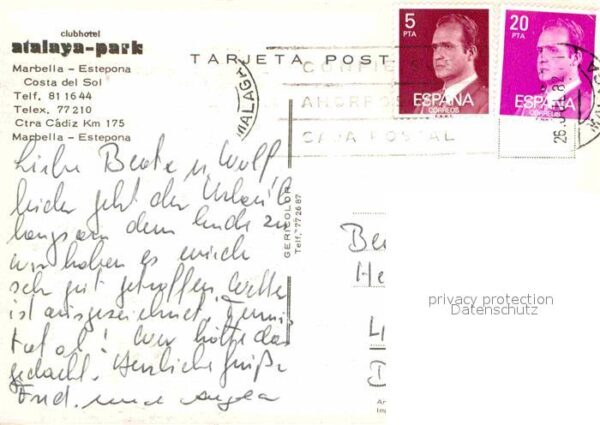 clubhotel
atalaya-park
Marbella - Estepona
Costa del Sol
Telf. 811644
Telex. 77210
Ctra Cádiz Km 175
Marbella - Estepona
TARJETA POST
5
PTA
ESPAÑA
CORREOS
20
PTA
ESPAÑA
CORREOS
MALAGA
CONFIE S
AHORROS
CAJA POSTAL
MALAGA
GERICOLOR
Telf. 772687
Liebe Beate u. Wolf,
leider geht der Urlaub
langsam dem Ende zu
wir haben es
sehr gut getroffen, Wetter
ist ausgezeichnet, Tennis
total ! Wer hätte das
gedacht. Herzliche Grüße
und Angela
Be
He
D
privacy protection
Datenschutz